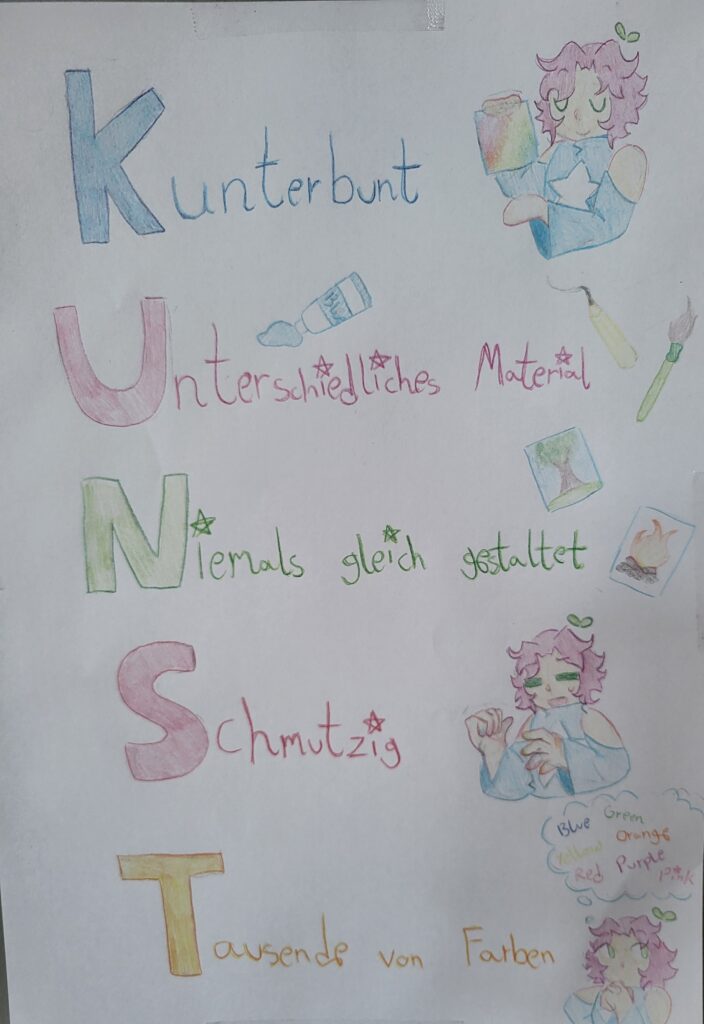 Kunterbunt
BLUE
Unterschiedliches Material
Niemals gleich gestaltet
Schmutzig
Blue Green
Orange
Yellow
Red Purple
Pink
Tausende von Farben